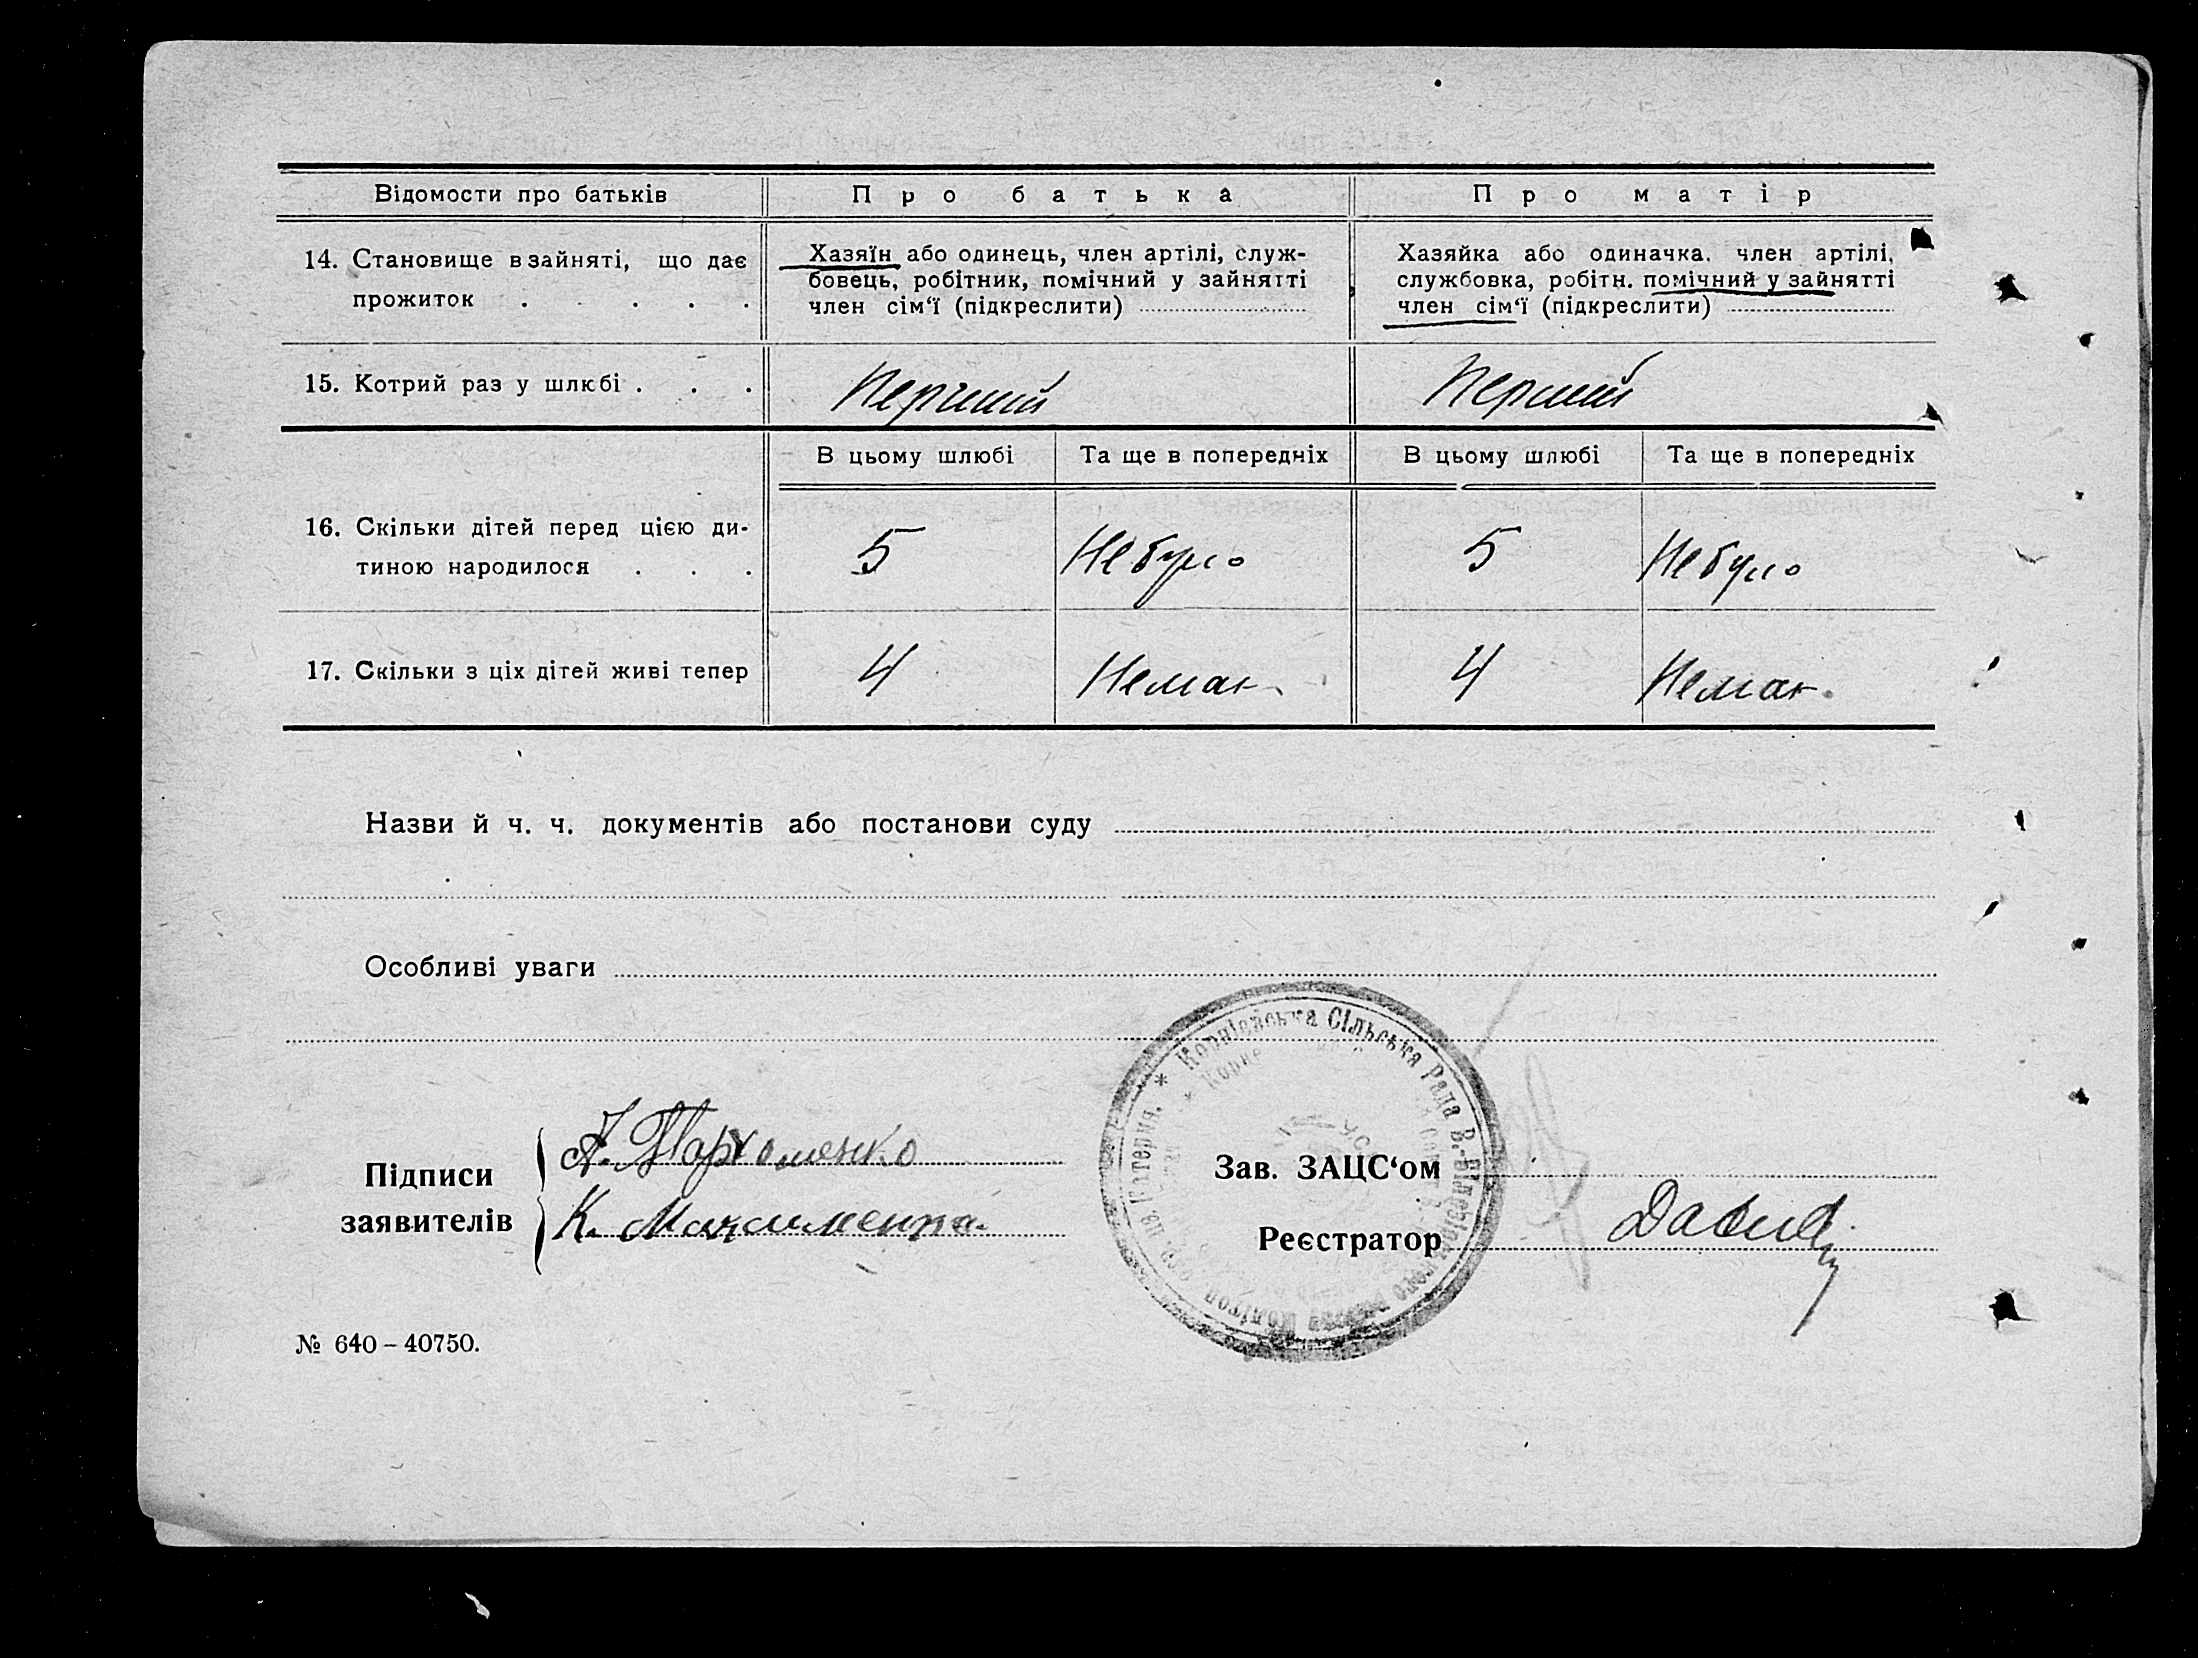 Відомости про батьків
Про батька
Про матір
14. Становище в зайняті, що дає
прожиток . . . . .
Хазяїн або одинець, член артілі, служ-
бовець, робітник, помічний у зайнятті
член сім‘ї (підкреслити)
Хазяйка або одиначка, член артілі,
службовка, робітн. помічний у зайнятті
член сім‘ї (підкреслити)
15. Котрий раз у шлюбі . . .
Перший
Перший
В цьому шлюбі
Та ще в попередніх
В цьому шлюбі
Та ще в попередніх
16. Скільки дітей перед цією ди-
тиною народилося . . .
5
Не було
5
Не було
17. Скільки з ціх дітей живі тепер
4
Немає
4
Немає
Назви й ч. ч. документів або постанови суду
Особливі уваги
* Корніївська Сільська Рада В.-
Підписи
заявителів
А. Пархоменко
К.
Зав. ЗАЦС‘ом
Реєстратор
№ 640 – 40750.